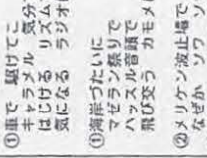 ①車で 駆けてこ
キャラメル 気分
はじける リズム
気になる ラジオ
①海岸づたいに
マゼラン祭りで
ハッスル音頭で
飛び交う カモメ
②メリケン波止場で
なぜか ソワ ソ